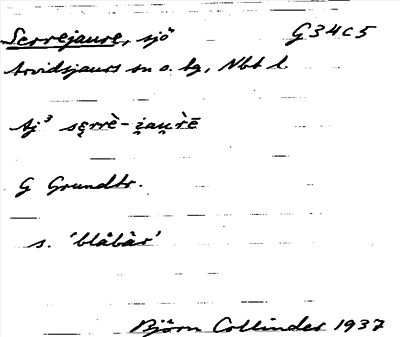 Serrejaure, sjö G34c5
Arvidsjaurs sn o. tg, Nbt l.
Aj³ sęrrè-i̯au̯rē
G Grundtr.
s. 'blåbär'
Björn Collinder 1937